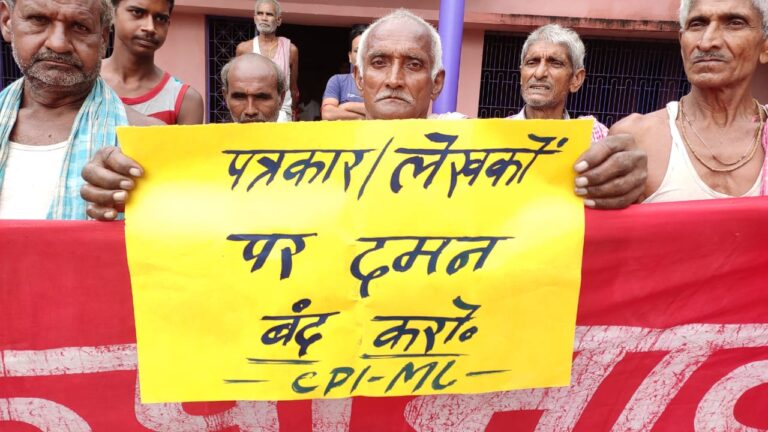 पत्रकार/लेखकों
पर दमन
बंद करो.
- CPI-ML -